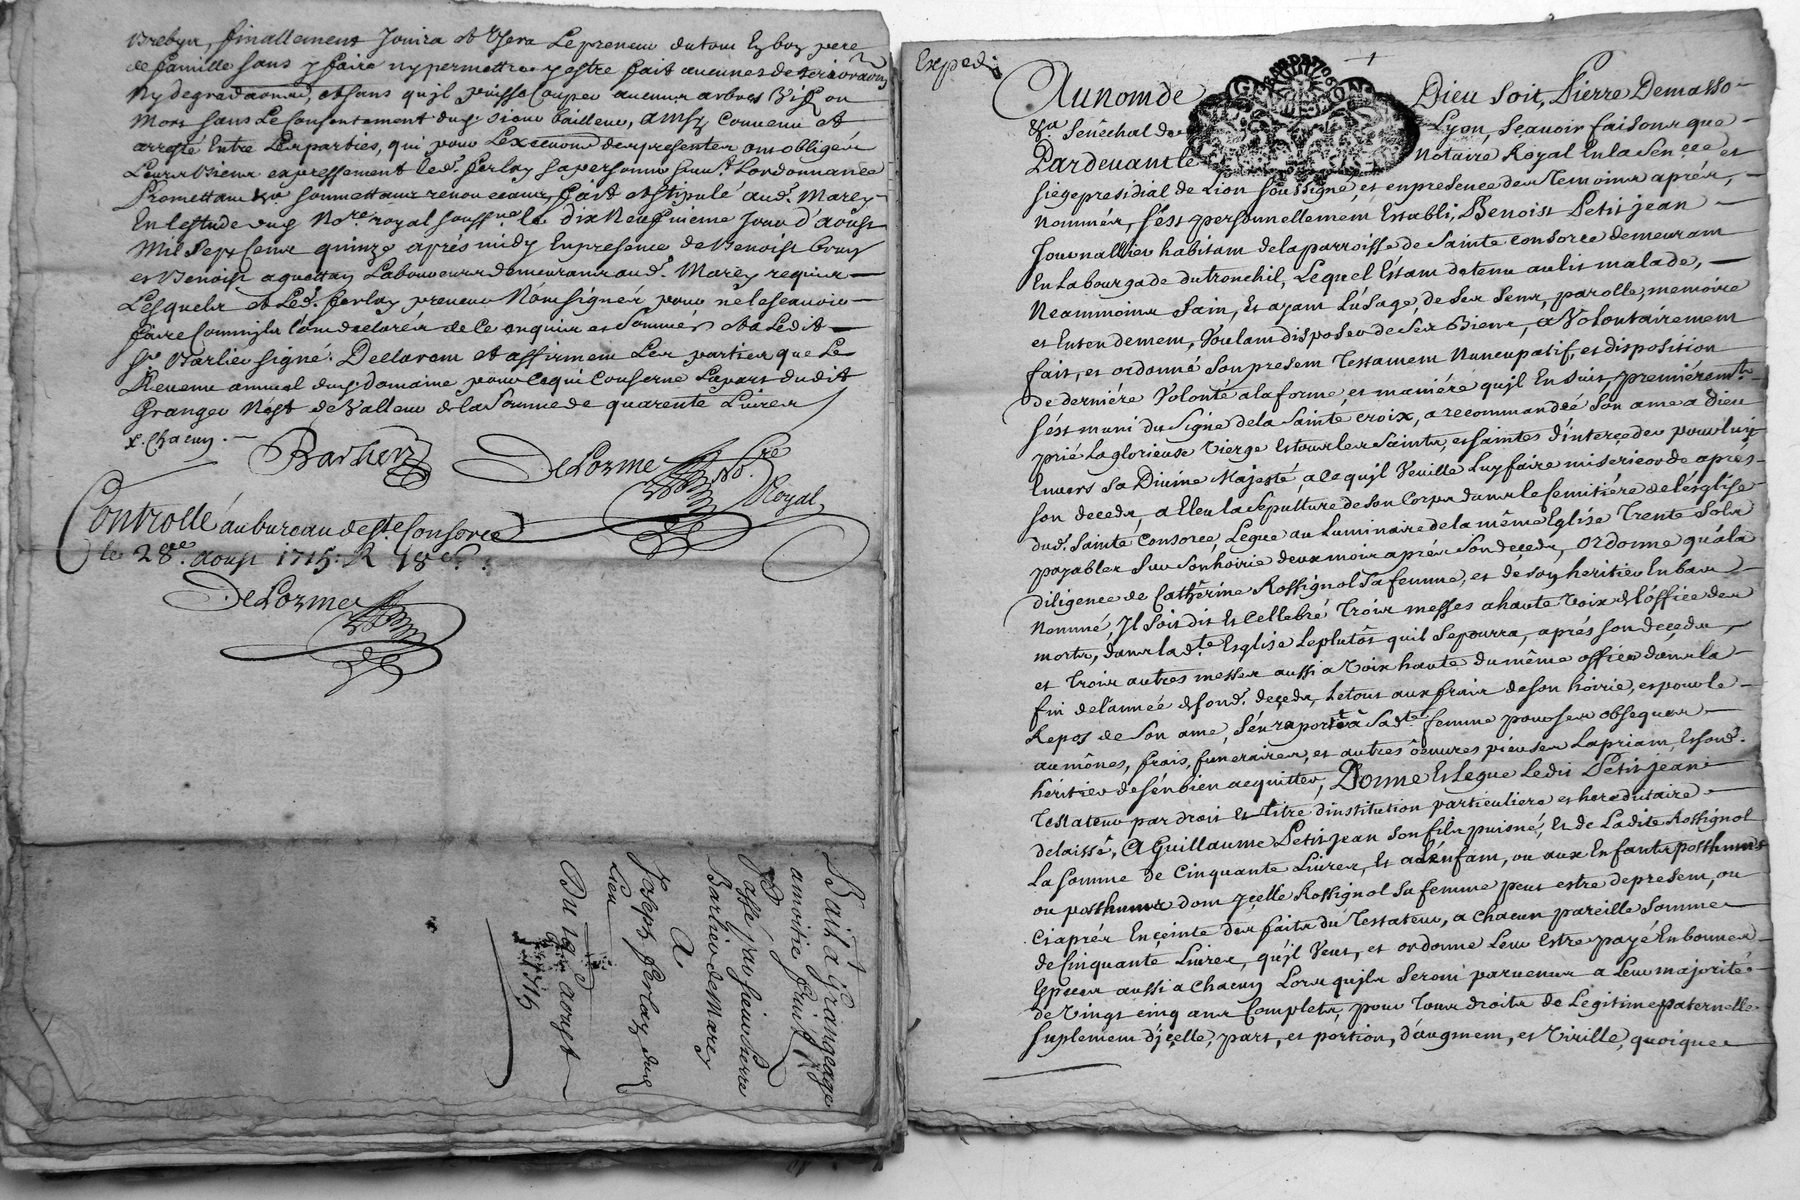 brebys, finallement Jouira et Usera Le preneur du tout En bon pere
de famille sans y faire ny permettre y estre fait aucunes deteriorãõns
Ny degredaõns, et sans qu'jl puisse Couper aucuns arbres Vifs ou
Morts sans Le Consentement dud. sieur bailleur, ainsy Convenu et
arreté Entre Les parties, qui pour Lexecution des presentes ont obligés
Leurs biens expressement led. ferlay sa personne suivt. Lordonnance
Promettans &a soumettans renonceans, fait et stipulé aud. Marcy
En lestude dud. Nore. royal soussne. le dix Neufvieme Jour d'aoust
Mil Sept Cent quinze aprés midy En presence de Benoist
et Benoist Laboureurs demeurants aud. Marcy requis
Lesquels et Led. ferlay preneur N'ont signés pour ne le scavoir
faire Comm'jls l'ont declarés de Ce enquis et Sommés et a Ledit
Sr. Barlier signé. Declarent et affirment Les parties que Le
Revenu annuel dud. domaine pour Ce qui Conserne La part dudit
Granger N'est de Valleur de la Somme de quarente Livres
x. Chacun.
Barlier
DeLorme Nore. Royal
Controllé au bureau de ste. Consorce
le 28me. aoust 1715. R. 18 s.
DeLorme
Bail a Grangeage
a moitié fruit
Passé par sieur Pierre
Barlier de Marcy
A
Joseph ferlay dud
Lieu
Du 19e aoust
1715
Exped.
Au nom de Dieu soit, Pierre Demasso
&a Sénéchal de Lyon, scavoir faisons que
Pardevant le Notaire Royal En la Sencee et
siege presidial de Lion soussigné, et en presence des Temoins aprés,
nommés, s'est personnellement Establi, Benoist Petitjean
Journallier habitant de la parroisse de Sainte Consorce demeurant
En La bourgade du tronchil, Lequel Etant detenu au lit malade,
Neammoins Sain, Et ayant L'usage, de Ses Sens, parolle, memoire
et Entendement, Voulant disposer de Ses Biens, a Volontairement
fait, et ordonné Son present Testament Nuncupatif, et disposition
de derniére Volonté a la forme, et maniére qu'jl En suit, premiéremt.
s'est muni du Signe de la Sainte croix, a recommandée Son ame a Dieu
prié La glorieuse Vierge Et tous les Saints, et saintes d'interçeder pour luy
Envers Sa Divine Majesté, a ce qu'jl Veuille Luy faire misericorde aprés
son deceds, a Eleu la Sepulture de son Corps dans le semitiére de l'église
dud. Sainte Consorce, Legue au Luminaire de la même Eglise Trente Sols
payables Sur Son hoirie deux mois aprés Son deçeds, ordonne qu'à la
diligence de Cathérine Rossignol Sa femme, et de son heritier En bas
Nommé, Jl Soit dit Et Cellebré Trois messes a haute Voix de l'office des
morts, dans la dte Esglise Le plutôt qu'il Se pourra, aprés son deçeds,
et Trois autres messes aussi a Voix haute du même office dans la
fin de l'année de Sond. deçeds, Le tout aux frais de son hoirie, et pour le
Repos de Son ame, S'en raporte à Sadte. femme pour ses obseques
aumônes, frais, funeraires, et autres oeuvres pieuses La priant, Et sond.
héritier de s'en bien acquitter, Donne Et Legue Ledit Petitjean
Testateur par droit Et titre d'institution particuliere et hereditaire
delaissé, A Guillaume Petitjean Son fils puisné, Et de Ladite Rossignol
La somme de Cinquante Livres, Et a L'enfant, ou aux Enfants posthumes
ou posthumes dont ycelle Rossignol Sa femme peut estre de present, ou
ci aprés Enceinte des faits du Testateur, a Chacun pareille Somme
de Cinquante Livres, qu'jl Veut, et ordonne Leur Estre payé En bonnes
Espéces aussi a Chacun Lors qu'jls Seront parvenus a Leur majorité
de Vingt cinq ans Complets, pour Tous droits de Légitime paternelle
suplement d'jçelle, part, et portion, d'augment, et Virille, quoique